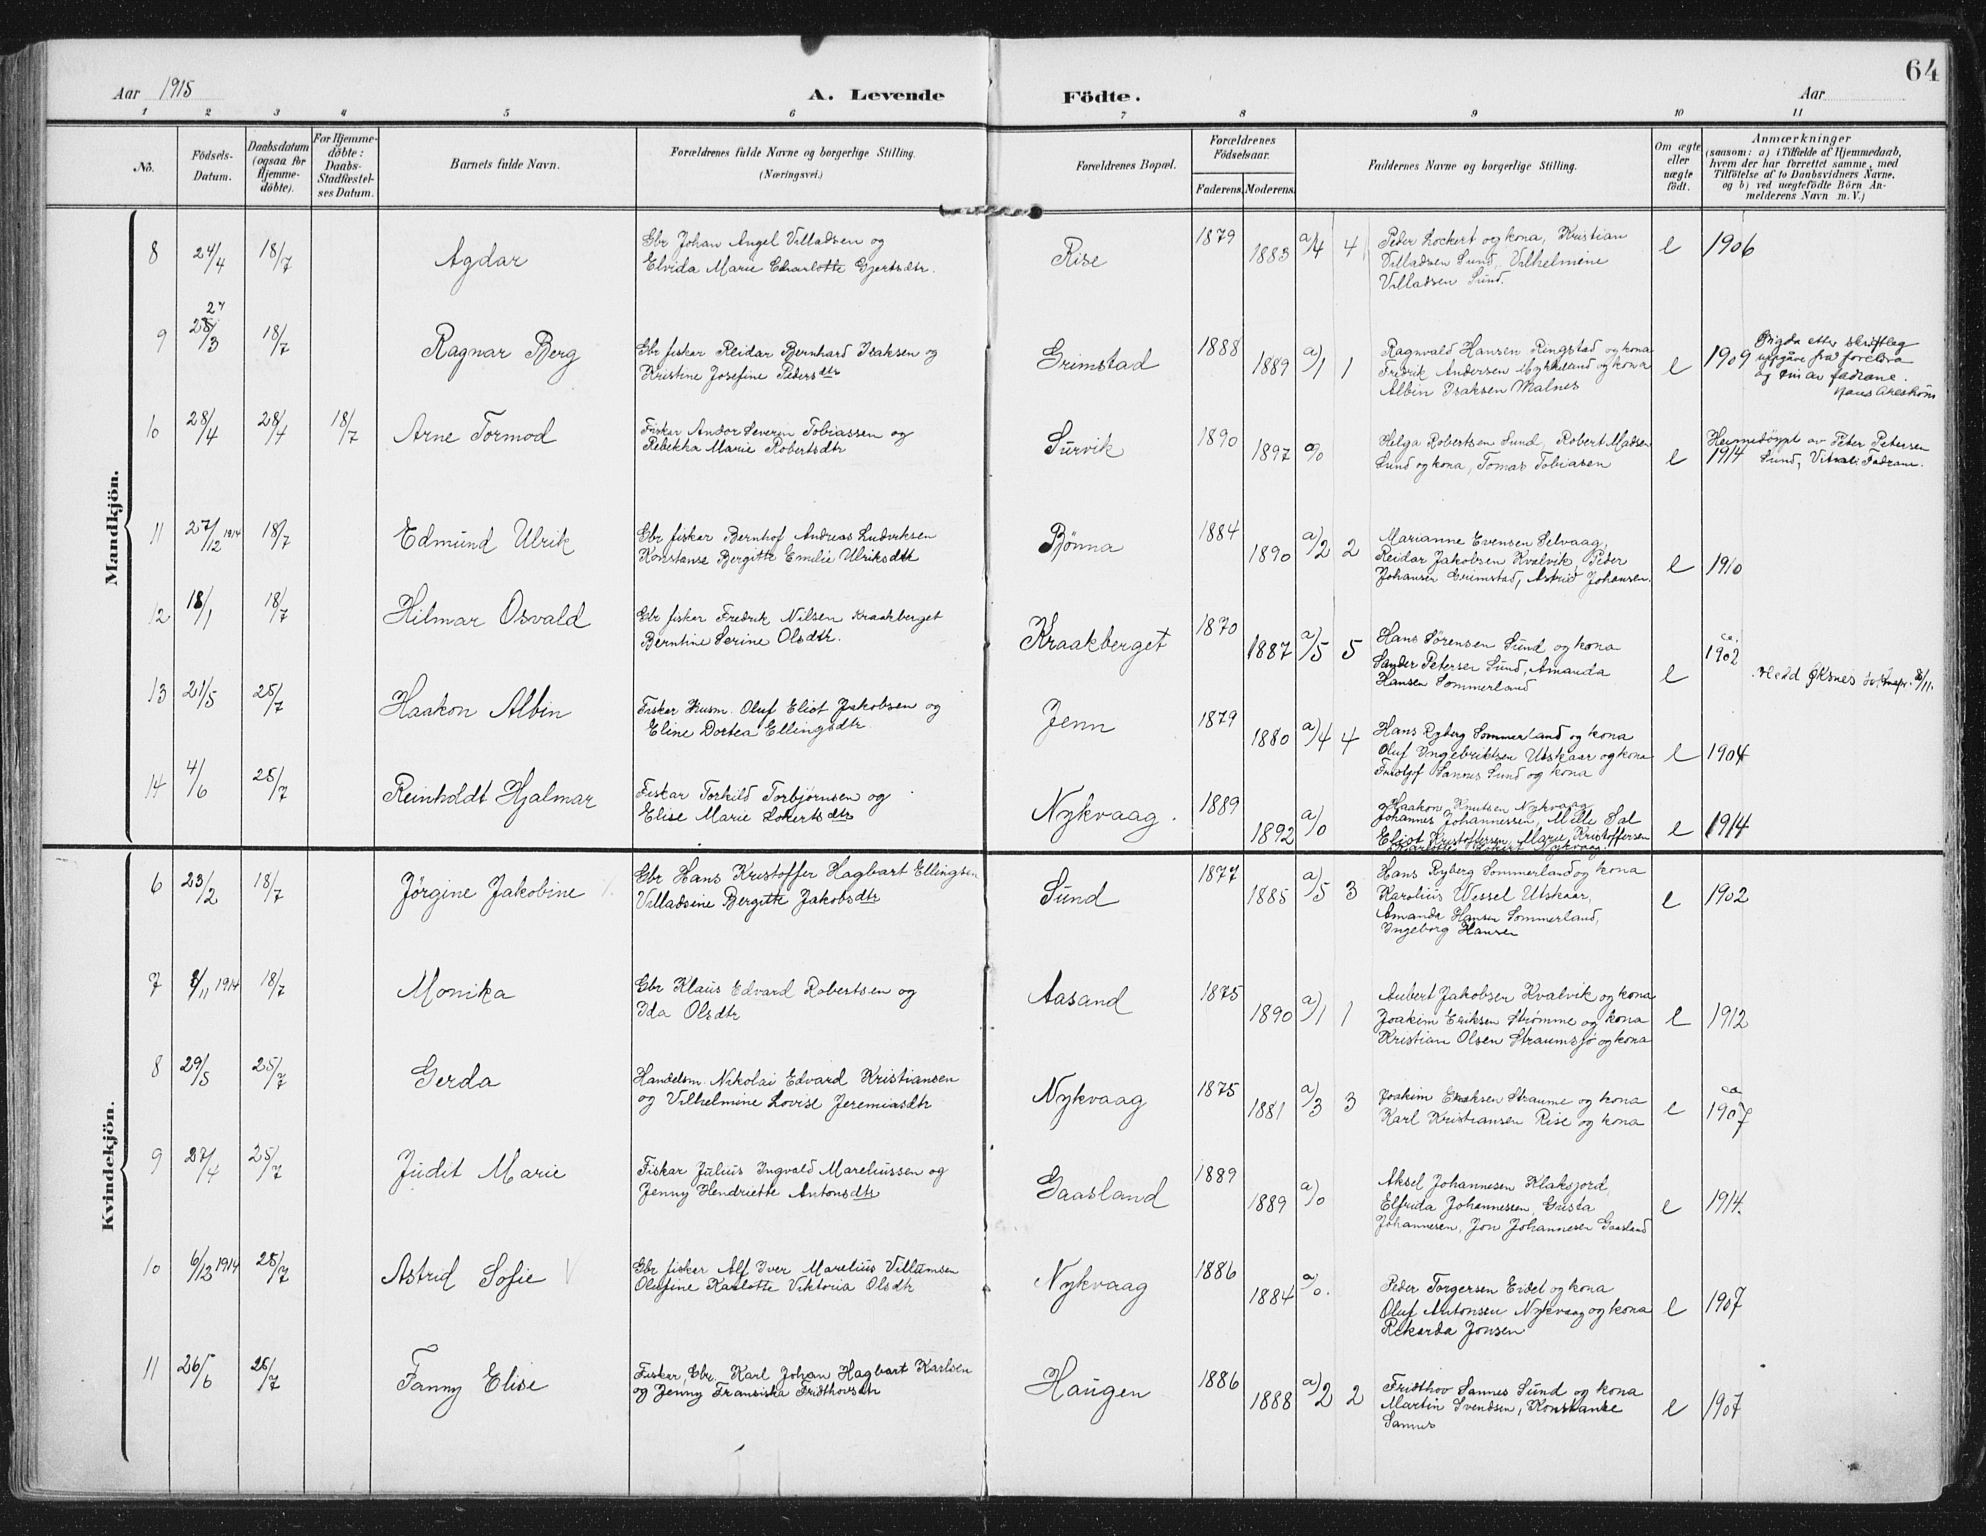 64
Aar 1915
A. Levende Födte.
Aar
1 2 3 4 5 6 7 8 9 10 11
No.
Födsels-Datum.
Daabsdatum (ogsaa for Hjemme-döbte).
For Hjemme-döbte: Daabs-Stadfæstel-ses Datum.
Barnets fulde Navn.
Forældrenes fulde Navne og borgerlige Stilling.
(Næringsvei.)
Forældrenes Bopæl.
Forældrenes Födselsaar.
Faderens. Moderens.
Faddernes Navne og borgerlige Stilling.
Om ægte eller uægte födt.
Anmærkninger
(saasom: a) i Tilfælde af Hjemmedaab, hvem der har forrettet samme, med Tilföielse af to Daabsvidners Navne, og b) ved uægtefödte Börn Anmelderens Navn m. V.)
Mandkjön.
8 24/4 18/7 Agdar
Gbr Johan Angel Villadsen og
Elvida Marie Charlotte Gjertsdtr.
Rise 1879 1883 a/4 4
Peder Lockert og kona, Kristian
Villadsen Sund, Vilhelmine
Villadsen Sund.
e 1906
9 27/3 18/7 Ragnar Berg
Gbr fiskar Reidar Bernhard Isaksen og
Kristine Josefine Pedersdtr
Grimstad 1888 1889 a/1 1
Ragnvald Hansen Ringstad og kona
Fredrik Andersen og kona
Albin Isaksen Malnes
e 1909
10 28/4 28/4 18/7 Arne Tormod
Fiskar Andor Severin Tobiassen og
Rebekka Marie Robertsdtr
Survik 1890 1897 a/0
Helga Robertsen Sund, Robert Madsen
Sund og kona, Tomas Tobiasen
e 1914
Heimedöypt av Peter Petersen
Sund,
11 27/12 1914 18/7 Edmund Ulrik
Gbr fiskar Bernhof Andreas Ludviksen
Konstanse Bergitte Emilie Ulriksdtr
Bjönna 1884 1890 a/2 2
Marianne Evensen Selvaag,
Reidar Jakobsen Kvalvik, Peder
Johansen Grimstad, Astrid Johansen.
e 1910
12 18/1 18/7 Hilmar Osvald
Gbr fiskar Fredrik Nilsen Kraakberget
Berntine Serine Olsdtr.
Kraakberget 1870 1887 a/5 5
Hans Sørensen Sund og kona
Sander Petersen Sund, Amanda
Hansen Sommerland
e ca. 1902
13 21/5 25/7 Haakon Albin
Fiskar Husm. Oluf Eliot Jakobsen og
Eline Dortea Ellingsdtr
Jenn 1879 1880 a/4 4
Hans Ryberg Sommerland og kona
Oluf Ingebriktsen Utskaar og kona
Sannes Sund og kona
e 1904
14 4/6 25/7 Reinholdt Hjalmar
Fiskar Torkild Torbjørnsen og
Elise Marie Lokertsdtr
Nykvaag. 1889 1892 a/0
Haakon Knutsen Nykvaag
Johannes Johannessen, Mille Dal
Eliot Kristoffersen, Marie Kristoffersen
Nykvaag.
e 1914
Kvindekjön.
6 23/2 18/7 Jørgine Jakobine
Gbr Hans Kristoffer Hagbart Ellingsen
Villadsine Bergitte Jakobsdtr
Sund 1877 1885 a/5 3
Hans Ryberg Sommerland og kona
Karolius Wessel Utskaar,
Amanda Hansen Sommerland,
Ingeborg Hansen
e 1902
7 8/11 1914 18/7 Monika
Gbr Klaus Edvard Robertsen og
Ida Olsdtr
Aasand 1875 1890 a/1 1
Aubert Jakobsen Kvalvik og kona
Joakim Eriksen Strømme og kona
Kristian Olsen Straumsjø og kona
e 1912
8 29/5 25/7 Gerda
Handelsm. Nikolai Edvard Kristiansen
og Vilhelmine Lovise Jeremiasdtr
Nykvaag 1875 1881 a/3 3
Joakim Eriksen Straume og kona
Karl Kristiansen Rise og kona
e ca 1907
9 27/4 25/7 Judit Marie
Fiskar Julius Ingvald Mareliussen og
Jenny Hendriette Antonsdtr
Gaasland 1889 1889 a/0
Aksel Johannesen Klaksjord,
Elfrida Johannesen, Gusta
Johannesen, Jon Johannesen Gaasland
e 1914.
10 6/12 1914 25/7 Astrid Sofie
Gbr fiskar Alf Iver Marelius Villumsen
Olufine Karlotte Viktoria Olsdtr
Nykvaag 1886 1884 a/0.
Peder Torgersen Eidet og kona
Oluf Antonsen Nykvaag og kona
Rikarda Jonsen
e 1907
11 26/6 25/7 Fanny Elise
Fiskar, Gbr. Karl Johan Hagbart Karlsen
og Jenny Fransiska Fridthovsdtr
Haugen 1886 1888 a/2 2
Fridthov Sannes Sund og kona
Martin Svendsen, Konstanse
Sannes
e 1907